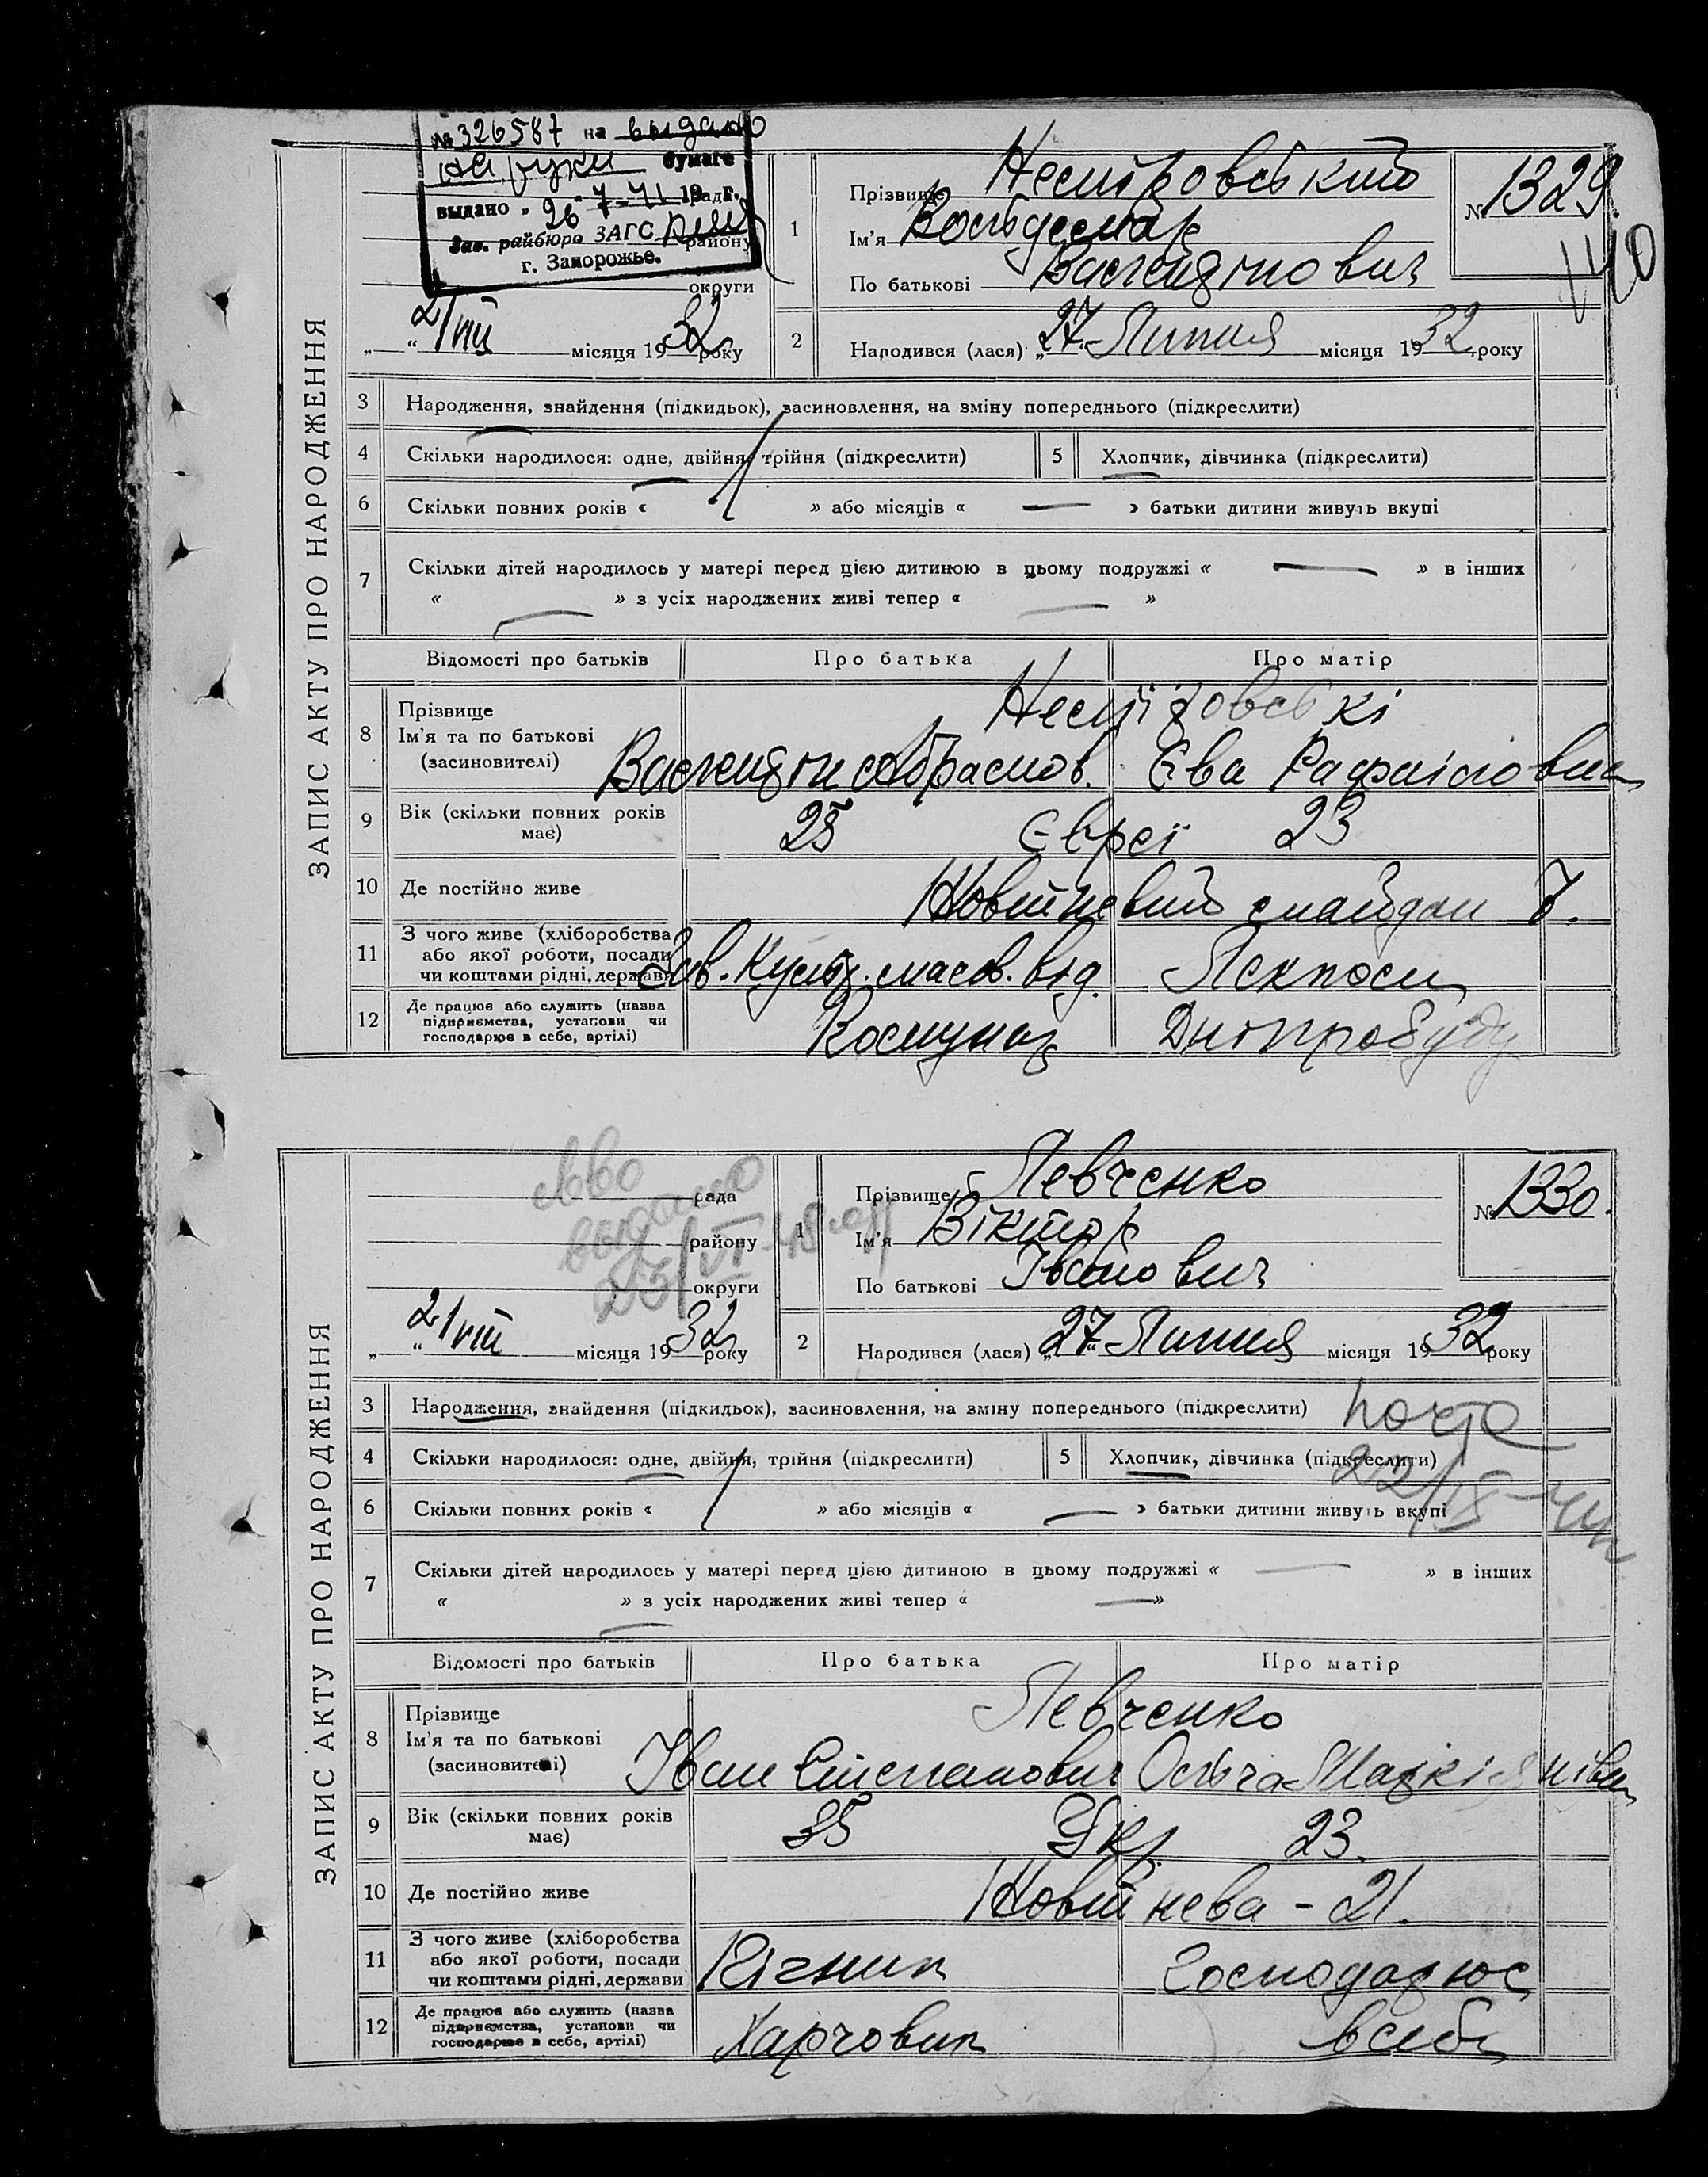 № 326587 на выдано
на руки бумаге
выдано „ 26 " 7-41 19 г.
Зав. райбюро ЗАГС
г. Запорожье.
рада
району
округи
„ “ 2/VIII місяця 1932 року
ЗАПИС АКТУ ПРО НАРОДЖЕННЯ
1
Прізвище
Ім'я Вольдемар
По батькові Валентінович
№ 1329.
2
Народився (лася) „ 27 “ Липня місяця 1932 року
3 Народження, знайдення (підкидьок), засиновлення, на зміну попереднього (підкреслити)
4 Скільки народилося: одне, двійня, трійня (підкреслити)
5 Хлопчик, дівчинка (підкреслити)
6 Скільки повних років « » або місяців « — » батьки дитини живуть вкупі
7 Скільки дітей народилось у матері перед цією дитиною в цьому подружжі « — » в інших
« — » з усіх народжених живі тепер « — »
Відомості про батьків Про батька Про матір
8 Прізвище
Ім'я та по батькові
(засиновителі)
Валентін Абрамов. Єва Рафаіловна
9 Вік (скільки повних років
має)
25 Євреї 23
10 Де постійно живе
Жовтневий майдан 7.
11 З чого живе (хліборобства
або якої роботи, посади
чи коштами рідні, держави
Зав. Культ. масов. від.
12 Де працює або служить (назва
підприємства, установи чи
господарює в себе, артілі)
Комунар Дніпробуду
рада
району
округи
выдано
„ “ 2/VIII місяця 1932 року
ЗАПИС АКТУ ПРО НАРОДЖЕННЯ
1
Прізвище Левченко
Ім'я Віктор
По батькові Іванович
№ 1330.
2
Народився (лася) „ 27 “ Липня місяця 1932 року
3 Народження, знайдення (підкидьок), засиновлення, на зміну попереднього (підкреслити)
почта
4 Скільки народилося: одне, двійня, трійня (підкреслити)
5 Хлопчик, дівчинка (підкреслити)
6 Скільки повних років « » або місяців « — » батьки дитини живуть вкупі
7 Скільки дітей народилось у матері перед цією дитиною в цьому подружжі « — » в інших
« — » з усіх народжених живі тепер « — »
Відомості про батьків Про батька Про матір
8 Прізвище
Ім'я та по батькові
(засиновителі)
Левченко
Іван Степанович Ольга
9 Вік (скільки повних років
має)
35 Укр 23.
10 Де постійно живе
Жовтнева - 21.
11 З чого живе (хліборобства
або якої роботи, посади
чи коштами рідні, держави
Пічник Господарює
12 Де працює або служить (назва
підприємства, установи чи
господарює в себе, артілі)
Харчовик в себе